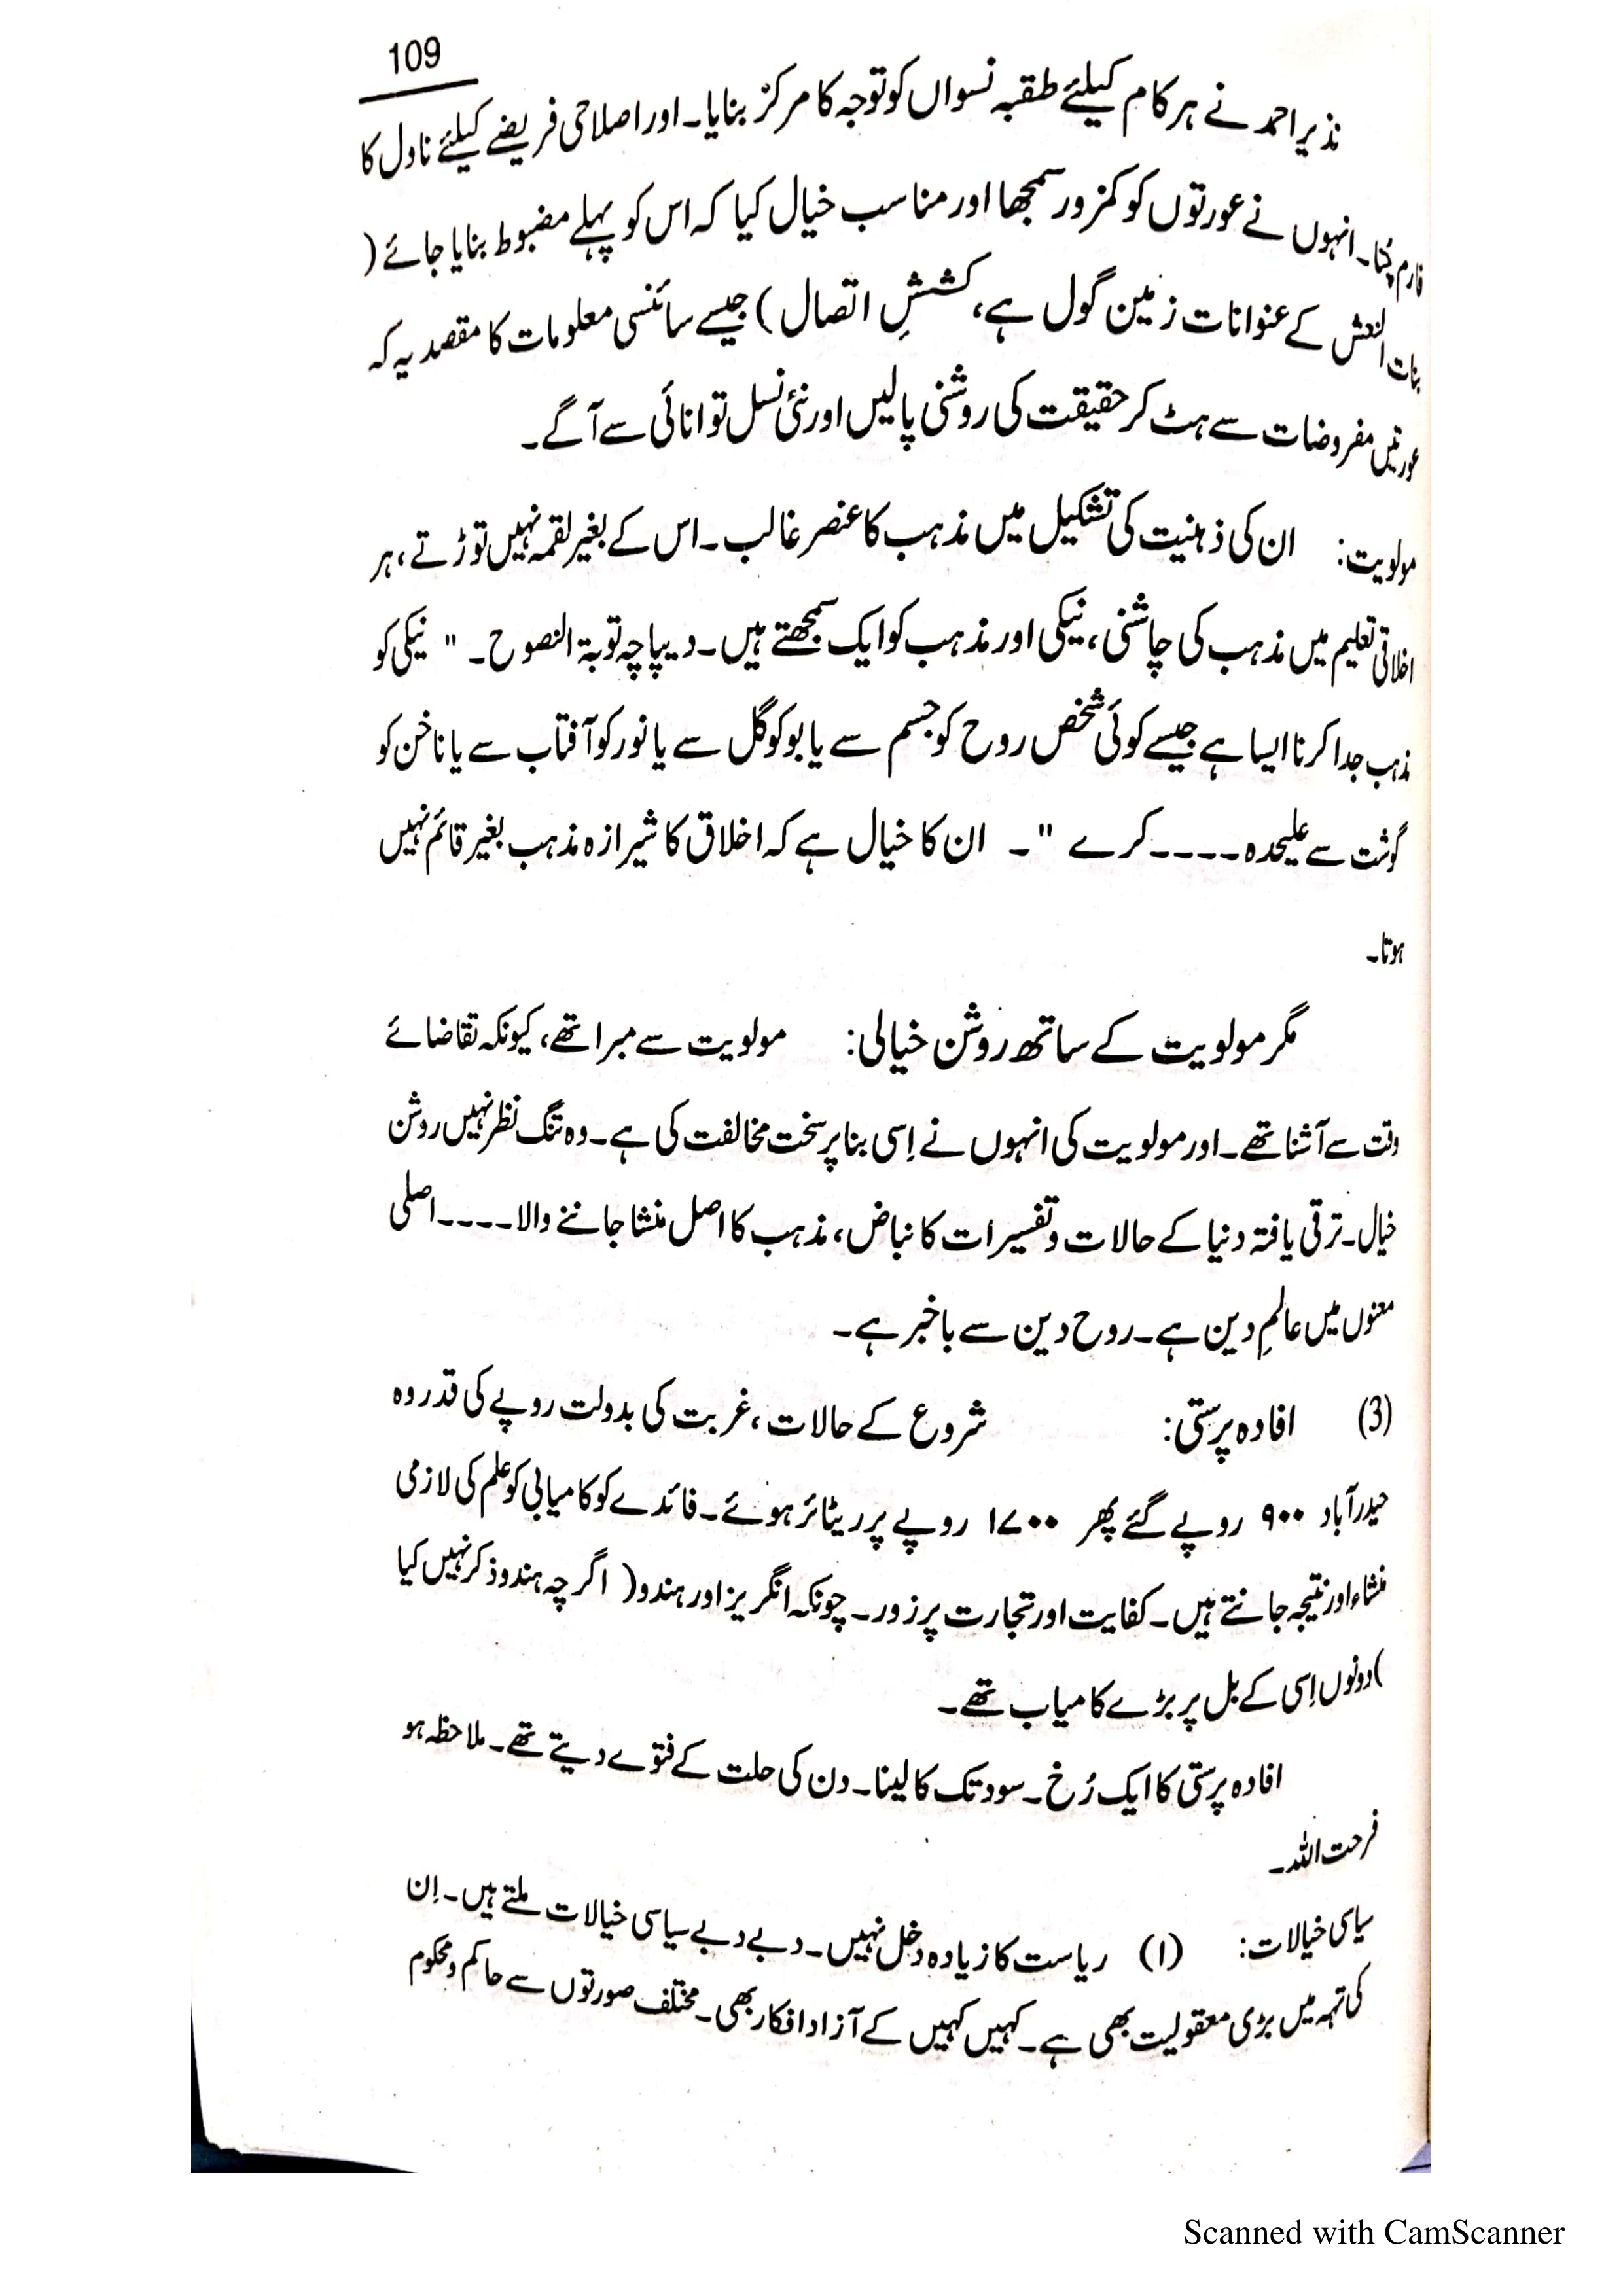 109
نذیر احمد نے ہر کام کیلئے طقبہ نسواں کو توجہ کا مرکز بنایا۔ اور اصلاحی فریضے کیلئے ناول کا
فارم چُنا۔ انہوں نے عورتوں کو کمزور سمجھا اور مناسب خیال کیا کہ اس کو پہلے مضبوط بنایا جائے (
بنات النعش کے عنوانات زمین گول ہے، کششِ اتصال) جیسے سائنسی معلومات کا مقصد یہ کہ
عورتیں مفروضات سے ہٹ کر حقیقت کی روشنی پالیں اور نئی نسل توانائی سے آگے۔
مولویت: ان کی ذہنیت کی تشکیل میں مذہب کا عنصر غالب۔ اس کے بغیر لقمہ نہیں توڑتے، ہر
اخلاقی تعلیم میں مذہب کی چاشنی، نیکی اور مذہب کو ایک سمجھتے ہیں۔ دیباچہ توبۃ النصوح۔ " نیکی کو
مذہب جدا کرنا ایسا ہے جیسے کوئی شخص روح کو جسم سے یا بو کو گل سے یا نور کو آفتاب سے یا ناخن کو
گوشت سے علیحدہ ۔۔۔۔ کرے "۔ ان کا خیال ہے کہ اخلاق کا شیرازہ مذہب بغیر قائم نہیں
ہوتا۔
مگر مولویت کے ساتھ روشن خیالی: مولویت سے مبرا تھے، کیونکہ تقاضائے
وقت سے آشنا تھے۔ اور مولویت کی انہوں نے اِسی بنا پر سخت مخالفت کی ہے۔ وہ تنگ نظر نہیں روشن
خیال۔ ترقی یافتہ دنیا کے حالات و تفسیرات کا نباض، مذہب کا اصل منشا جاننے والا ۔۔۔۔ اصلی
معنوں میں عالمِ دین ہے۔ روح دین سے باخبر ہے۔
(3) افادہ پرستی: شروع کے حالات، غربت کی بدولت روپے کی قدر وہ
حیدر آباد ۹۰۰ روپے گئے پھر ۱۷۰۰ روپے پر ریٹائر ہوئے۔ فائدے کو کامیابی کو علم کی لازمی
منشاء اور نتیجہ جانتے ہیں۔ کفایت اور تجارت پر زور۔ چونکہ انگریز اور ہندو( اگر چہ ہندو ذکر نہیں کیا
)دونوں اِسی کے بل پر بڑے کامیاب تھے۔
افادہ پرستی کا ایک رُخ۔ سود تک کا لینا۔ دن کی حلت کے فتوے دیتے تھے۔ ملاحظہ ہو
فرحت اللہ۔
سیاسی خیالات: (۱) ریاست کا زیادہ دخل نہیں۔ دبے دبے سیاسی خیالات ملتے ہیں۔ اِن
کی تہہ میں بڑی معقولیت بھی ہے۔ کہیں کہیں کے آزاد افکار بھی۔ مختلف صورتوں سے حاکم و محکوم
Scanned with CamScanner